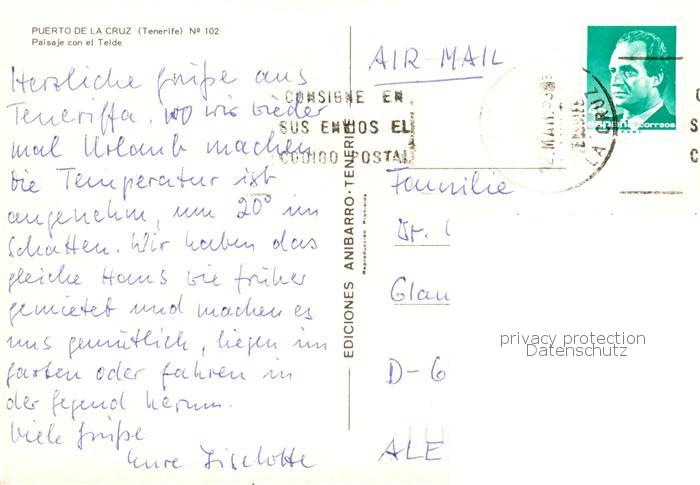 PUERTO DE LA CRUZ (Tenerife) Nº 102
Paisaje con el Teide
Herzliche Grüße aus
Teneriffa, wo wir wieder
mal Urlaub machen.
Die Temperatur ist
angenehm, um 20° im
Schatten. Wir haben das
gleiche Haus wie früher
gemietet und machen es
uns gemütlich, liegen im
Garten oder fahren in
der Gegend herum.
Viele Grüße
Eure Liselotte
EDICIONES ANIBARRO-TENERIFE
Reproducción Prohibida
AIR-MAIL
CONSIGNE EN
SUS ENVIOS EL
CODIGO POSTAL
LA CRUZ
correos
Familie
Dr.
Glau
D-6
ALE
privacy protection
Datenschutz